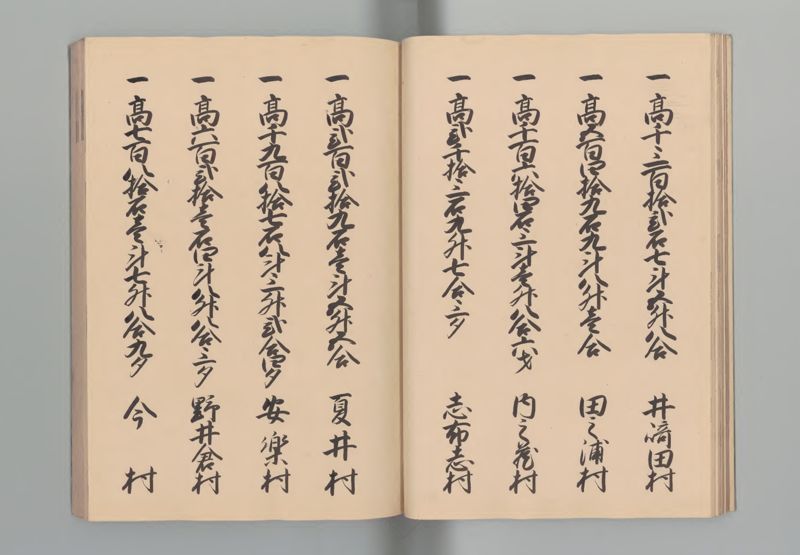 一高千三百拾弐石七斗五升八合 井﨑田村
一高五百四拾九石九斗八升壱合 田之浦村
一高千百六拾四石三斗壱升八合六才 内之蔵村
一高弐千拾三石九升七合三夕 志布志村
一高弐百弐拾九石壱斗五升五合 夏井村
一高千九百八拾七石八斗三升弐合四夕 安樂村
一高六百弐拾壱石四斗八升八合三夕 野井倉村
一高七百八拾石壱斗七升八合九夕 今村